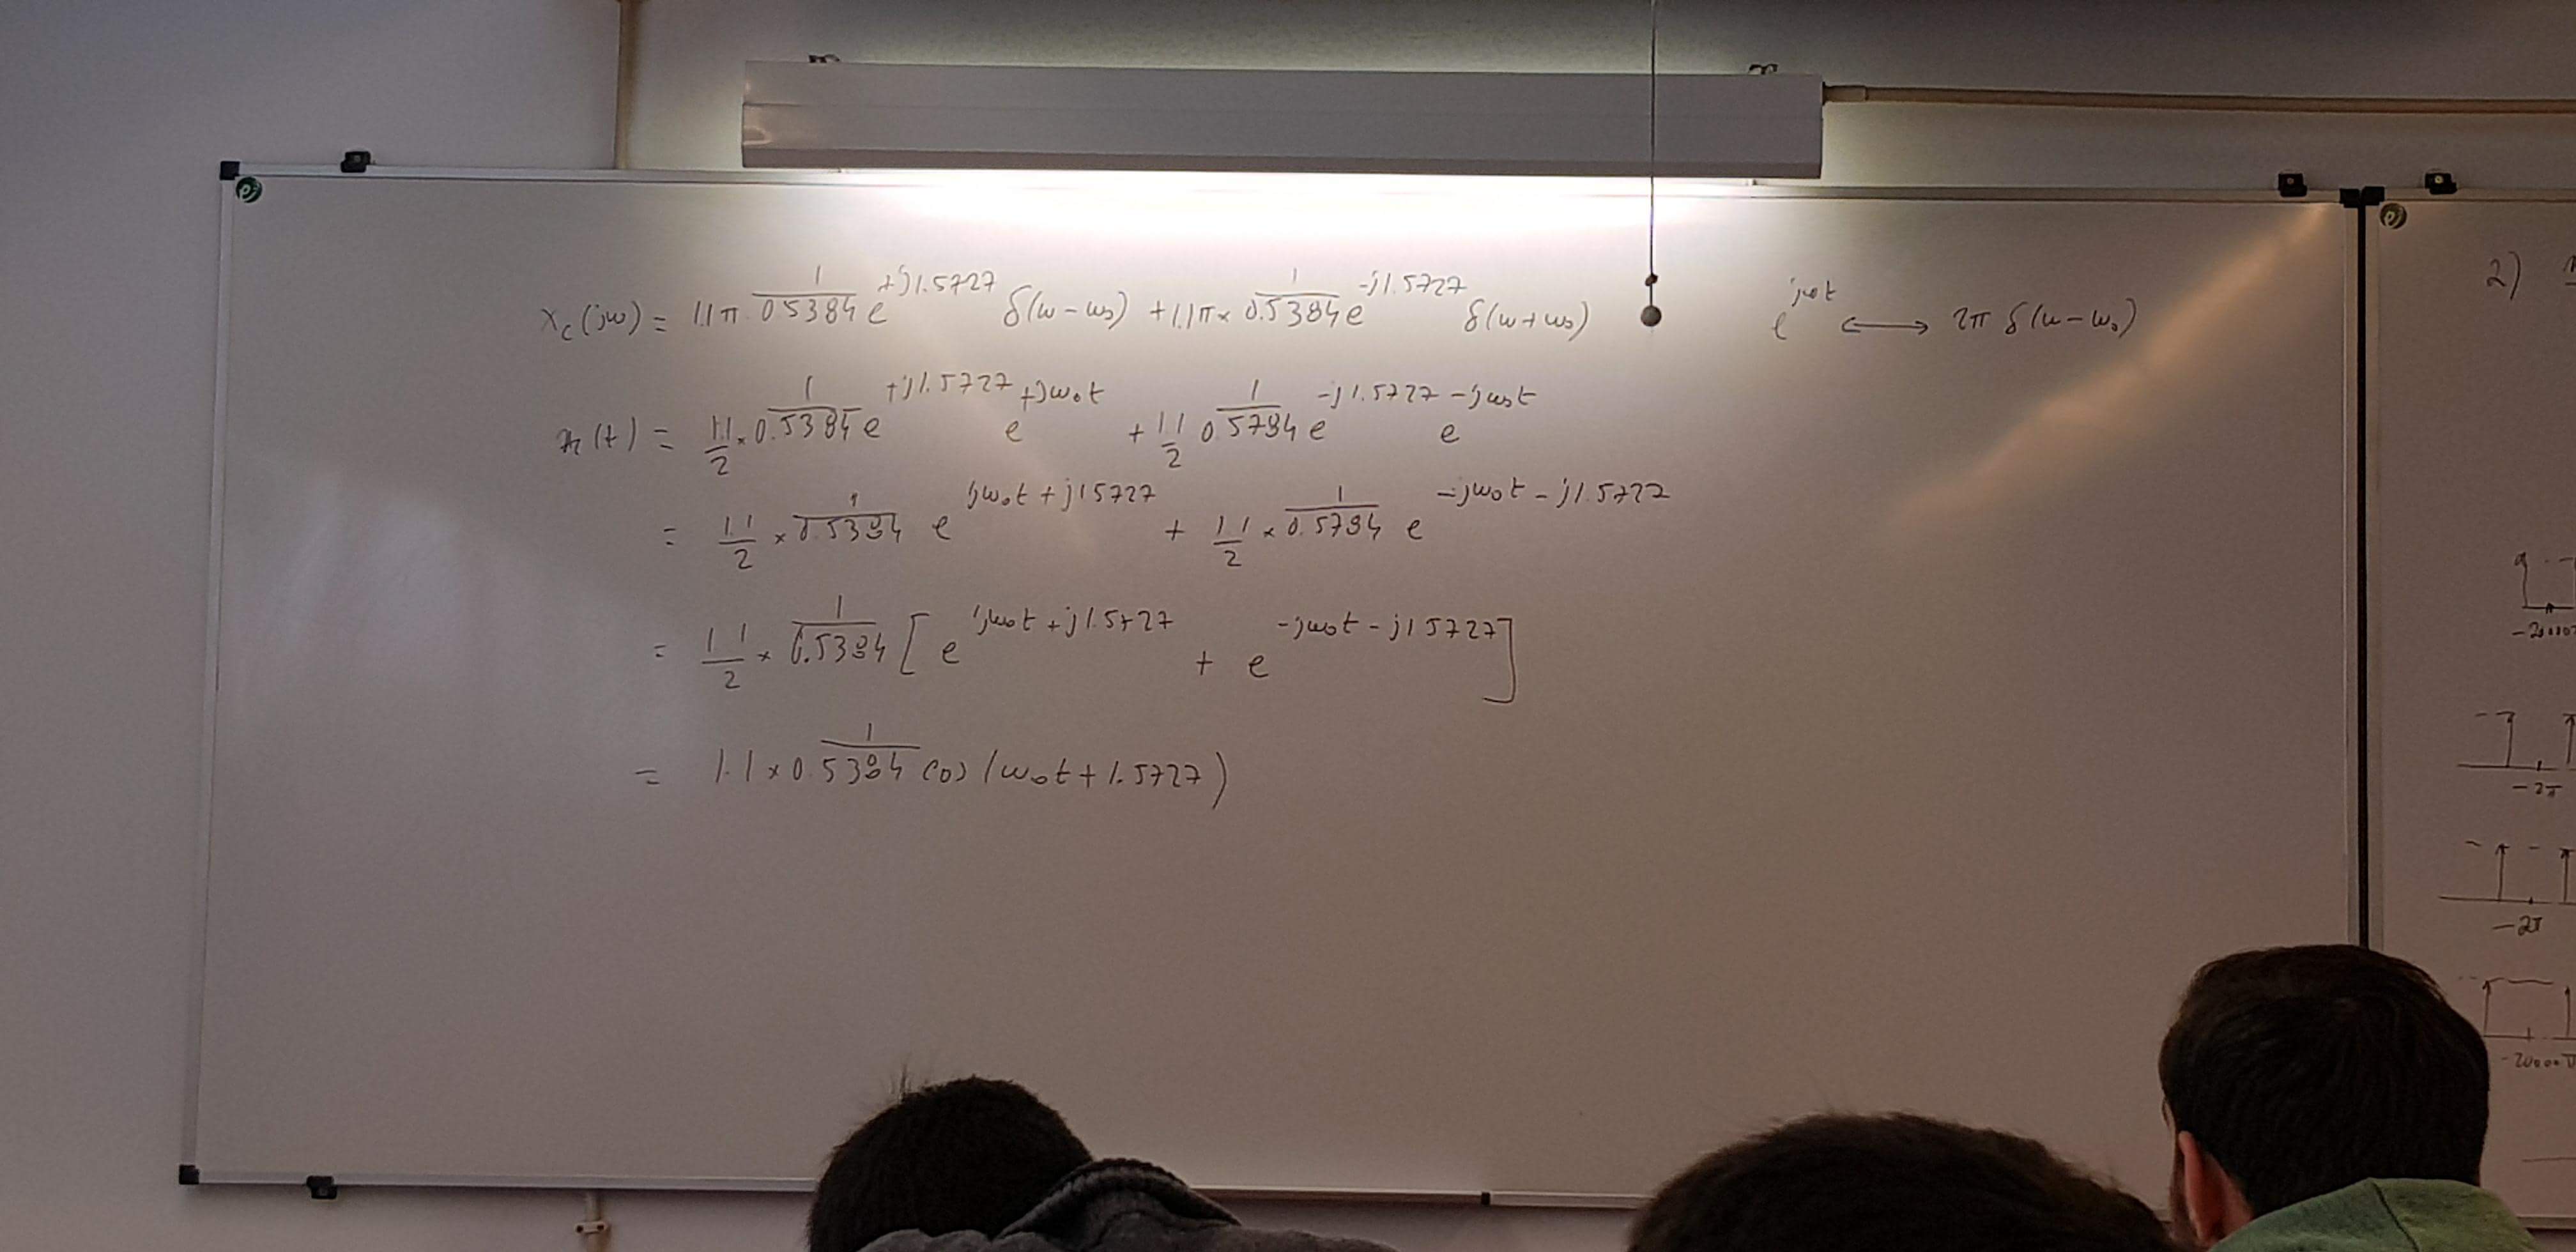 X_c(jω) = 1.1π 1/0.5384 e^{+j1.5727} δ(ω-ω₀) + 1.1π × 1/0.5384 e^{-j1.5727} δ(ω+ω₀)
e^{jω₀t} ⟷ 2π δ(ω-ω₀)
(t) = 1.1/2 × 1/0.5384 e^{+j1.5727} e^{+jω₀t} + 1.1/2 1/0.5784 e^{-j1.5727} e^{-jω₀t}
= 1.1/2 × 1/0.5384 e^{jω₀t + j1.5727} + 1.1/2 × 1/0.5784 e^{-jω₀t - j1.5727}
= 1.1/2 × 1/0.5384 [ e^{jω₀t + j1.5727} + e^{-jω₀t - j1.5727} ]
= 1.1 × 1/0.5384 cos(ω₀t + 1.5727)
2)
-2π
-2π
-20000π